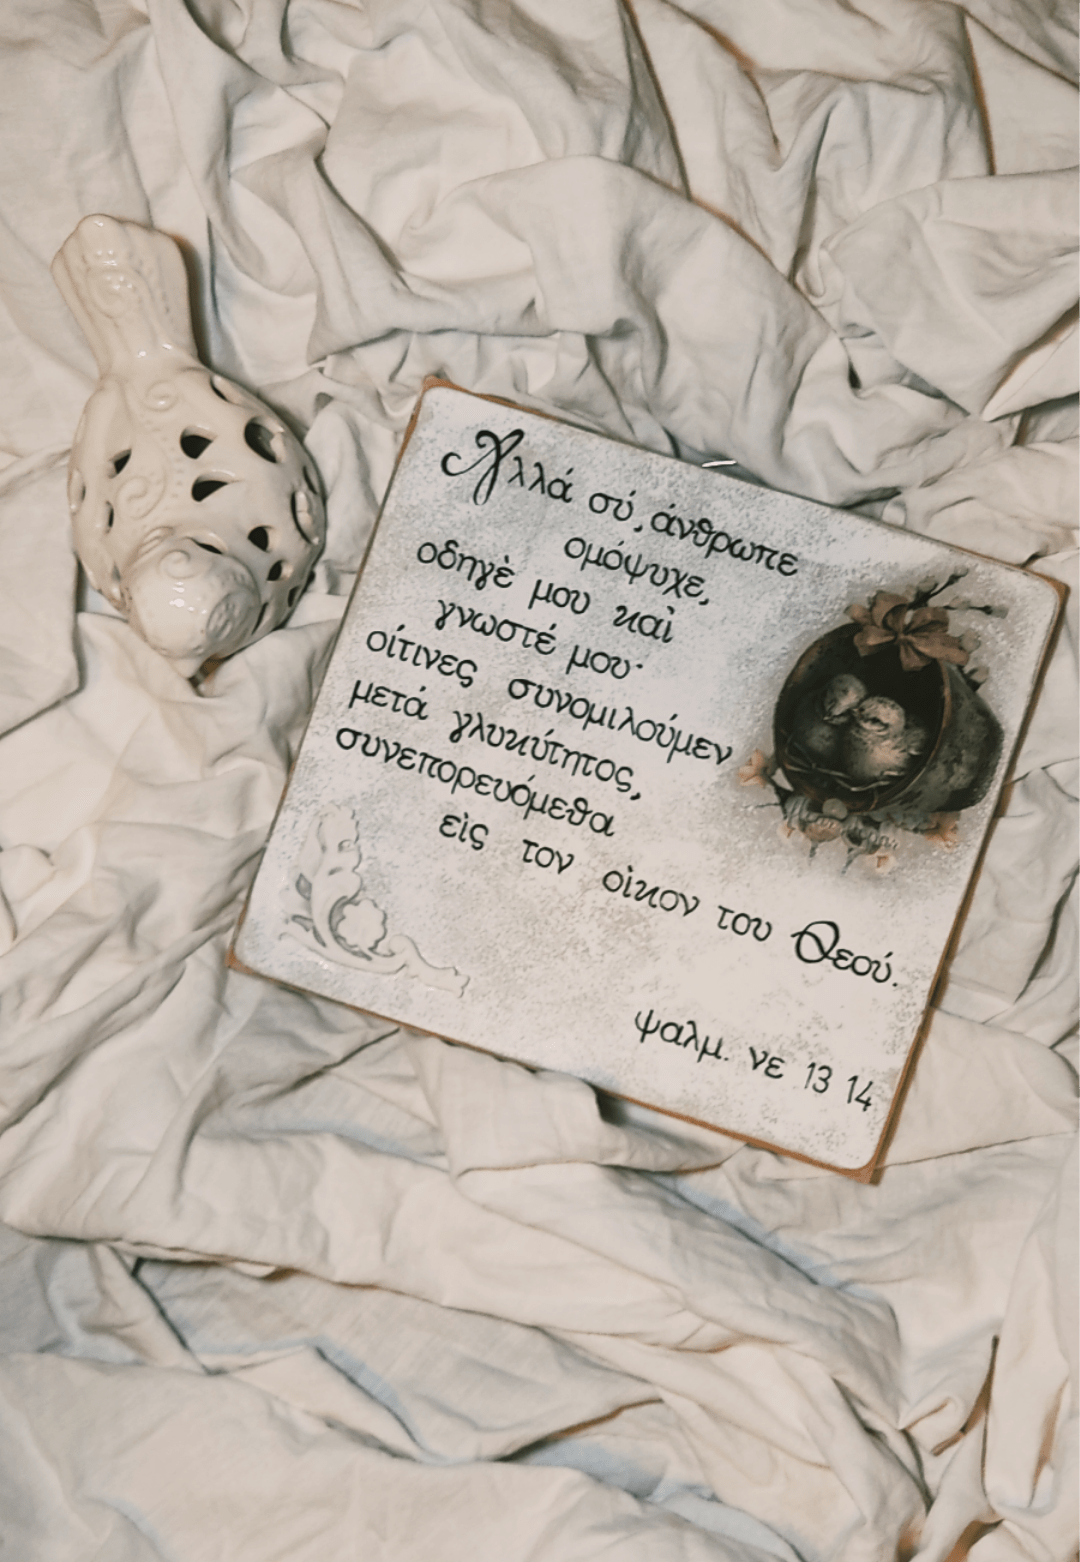 Αλλά σύ, άνθρωπε
ομόψυχε,
οδηγὲ μου καὶ
γνωστέ μου·
οίτινες συνομιλούμεν
μετά γλυκύτητος,
συνεπορευόμεθα
εἰς τον οἰκον του Θεού.
ψαλμ. νε 13 14